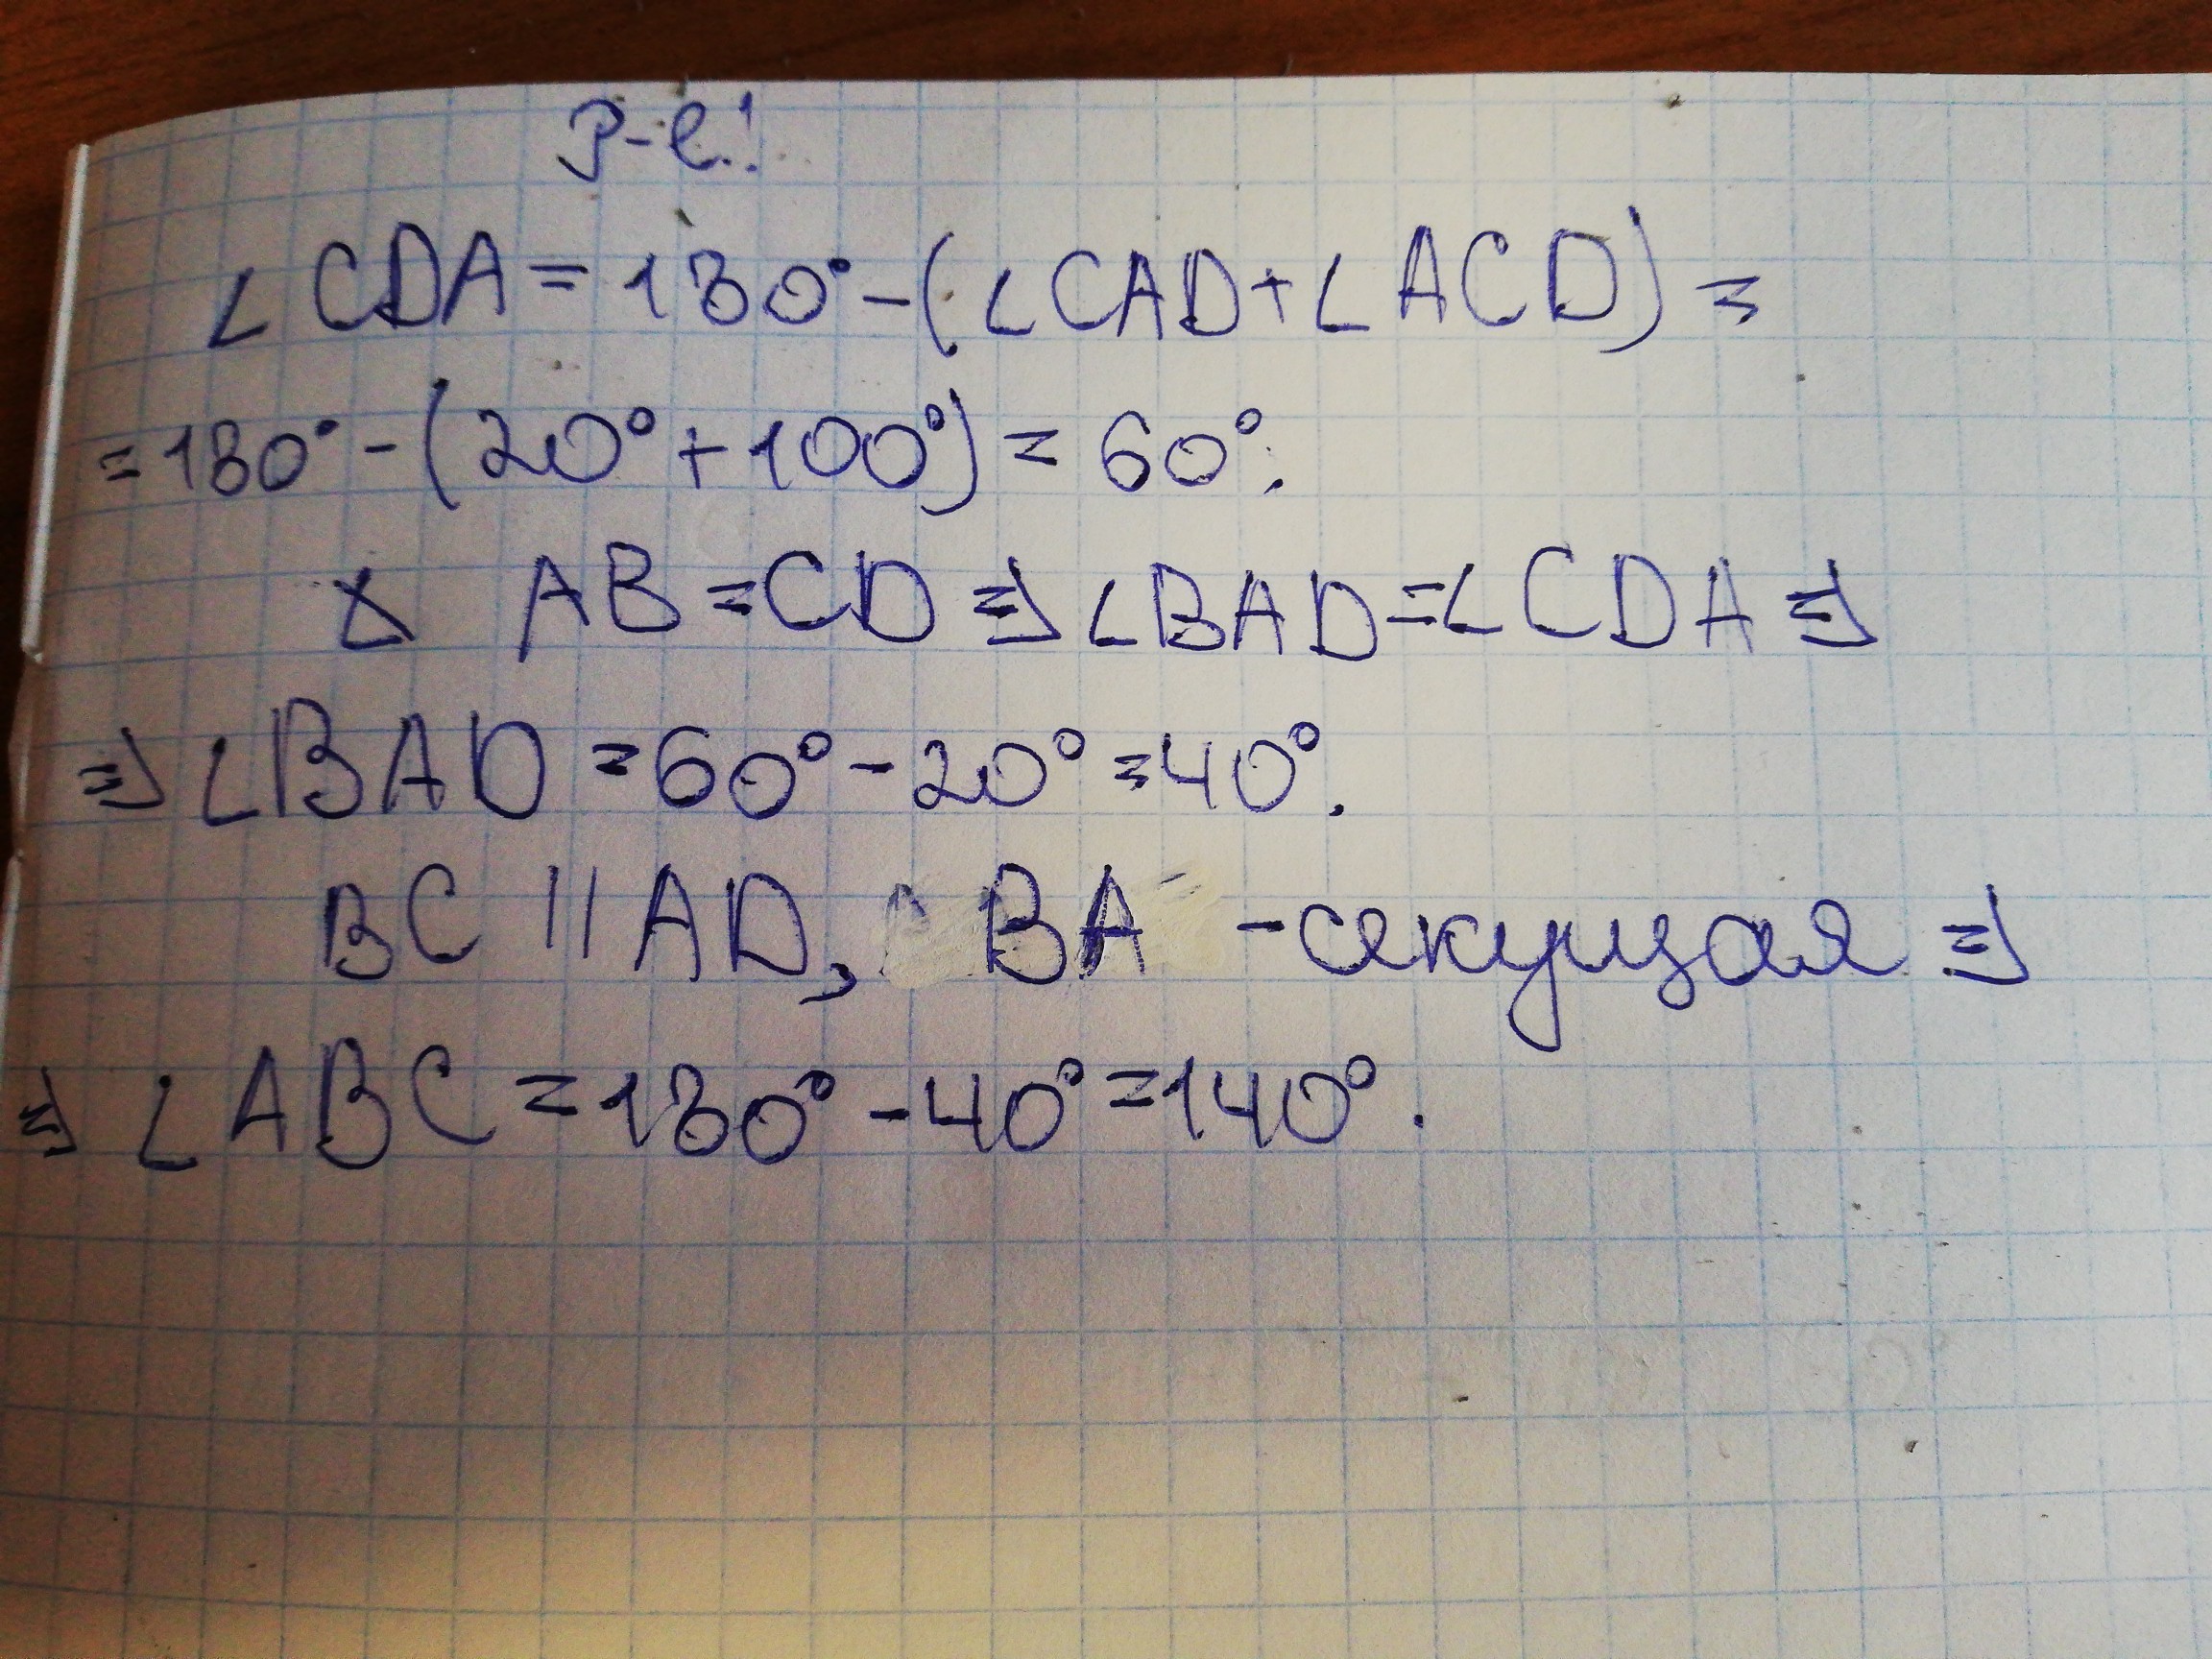 Р-е!
∠CDA = 180° - (∠CAD + ∠ACD) =
= 180° - (20° + 100°) = 60°.
AB = CD ⇒ ∠BAD = ∠CDA ⇒
⇒ ∠BAD = 60° - 20° = 40°.
BC || AD, BA - секущая ⇒
⇒ ∠ABC = 180° - 40° = 140°.